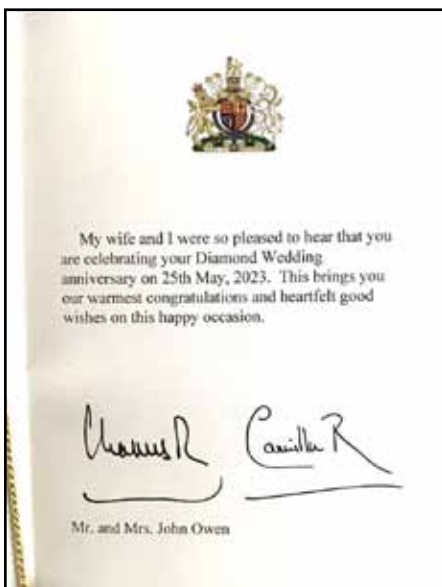 My wife and I were so pleased to hear that you
are celebrating your Diamond Wedding
anniversary on 25th May, 2023. This brings you
our warmest congratulations and heartfelt good
wishes on this happy occasion.
Charles R Camilla R
Mr. and Mrs. John Owen